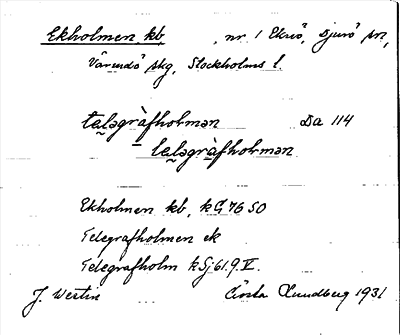 Ekholmen kb, nr 1 Eknö, Djurö sn,
Värmdö skg, Stockholms l.
telegràfholmən Da 114
telegràfholmən
Ekholmen kb, k G 76 50
Telegrafholmen ek
Telegrafholm k Sj 61. 9. V.
J. Westin Gösta Lundberg 1931